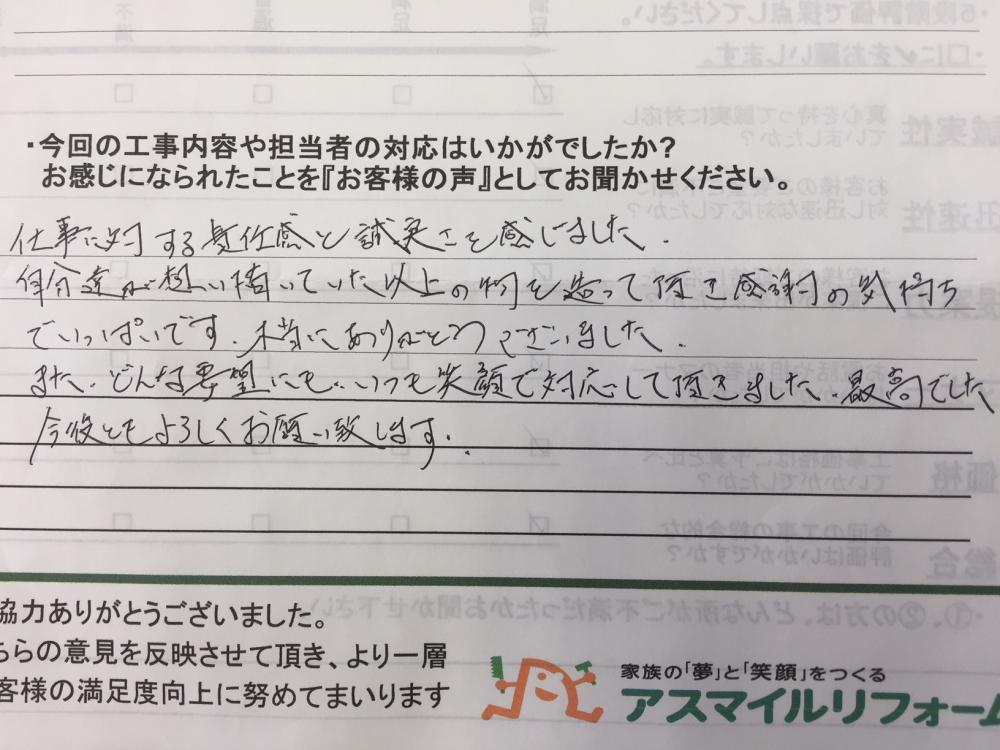 ・今回の工事内容や担当者の対応はいかがでしたか?
お感じになられたことを『お客様の声』としてお聞かせください。
仕事に対する責任感と誠実さを感じました.
自分達が想い描いていた以上の物を造って頂き感謝の気持ち
でいっぱいです.本当にありがとうございました.
また、どんな要望にも、いつも笑顔で対応して頂きました.最高でした
今後ともよろしくお願い致します.
協力ありがとうございました。
ちらの意見を反映させて頂き、より一層
客様の満足度向上に努めてまいります
家族の「夢」と「笑顔」をつくる
アスマイルリフォーム